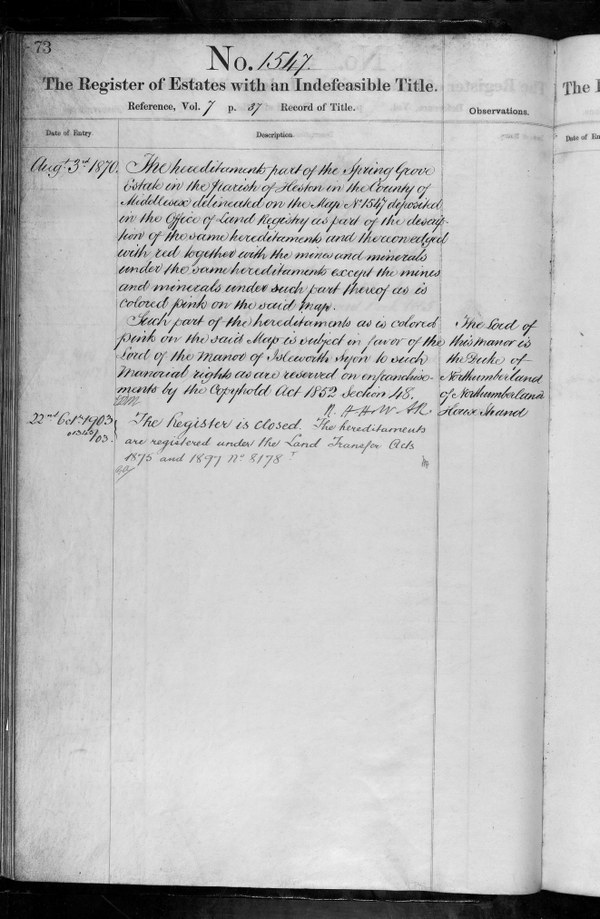 73
No. 1547.
The Register of Estates with an Indefeasible Title.
Reference, Vol. 7 p. 37 Record of Title.
Observations.
Date of Entry
Description
Augt. 3rd 1870.
The hereditaments part of the Spring Grove
Estate in the parish of Heston in the County of
Middlesex delineated on the Map No. 1547 deposited
in the Office of Land Registry as part of the descrip-
tion of the same hereditaments and thereon edged
with red together with the mines and minerals
under the same hereditaments except the mines
and minerals under such part thereof as is
colored pink on the said Map.
Such part of the hereditaments as is colored
pink on the said Map is subject in favor of the
Lord of the Manor of Isleworth Syon to such
Manorial rights as are reserved on enfranchise-
ments by the Copyhold Act 1852 Section 48.
The Lord of
this manor is
the Duke of
Northumberland
of Northumberland
House Strand
22nd Octr. 1903
The Register is closed. The hereditaments
are registered under the Land Transfer Acts
1875 and 1897 No. 8178
The I
Date of En